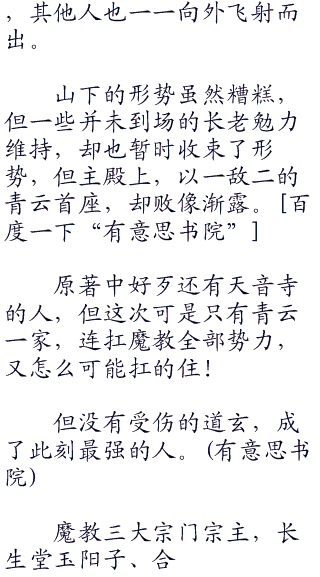 ，其他人也一一向外飞射而
出。
山下的形势虽然糟糕，
但一些并未到场的长老勉力
维持，却也暂时收束了形
势，但主殿上，以一敌二的
青云首座，却败像渐露。[百
度一下“有意思书院”]
原著中好歹还有天音寺
的人，但这次可是只有青云
一家，连扛魔教全部势力，
又怎么可能扛的住！
但没有受伤的道玄，成
了此刻最强的人。(有意思书
院)
魔教三大宗门宗主，长
生堂玉阳子、合